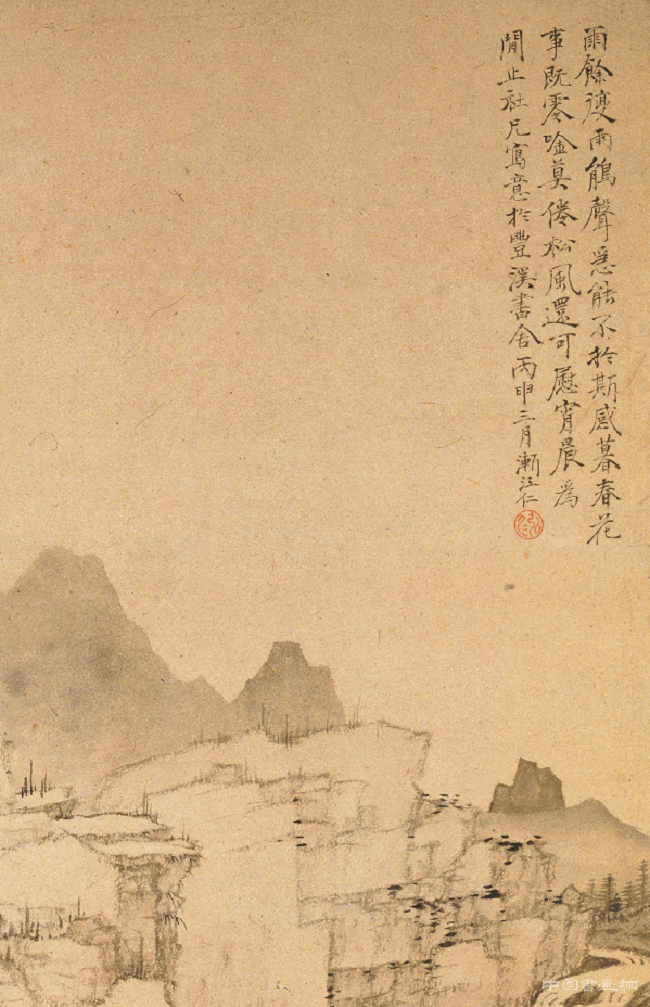 雨餘復雨鵑聲急能不於斯感暮春花
事既零唫莫倦松風還可慰宵晨為
閒止社兄寫意於豐溪書舍丙申三月漸江仁
中国书画网